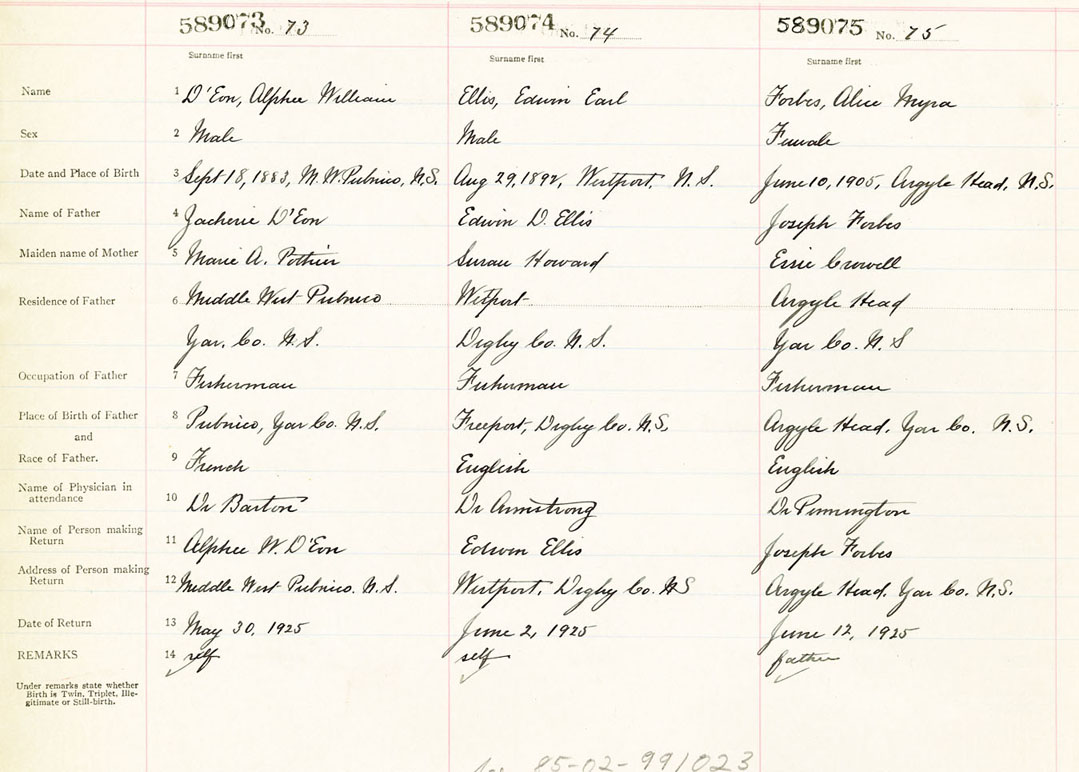 589073 No. 73 589074 No. 74 589075 No. 75
Surname first Surname first Surname first
Name 1 D'Eon, Alphee William Ellis, Edwin Earl Forbes, Alice Myra
Sex 2 Male Male Female
Date and Place of Birth 3 Sept 18, 1883, M. W. Pubnico, N.S. Aug 29, 1892, Westport, N.S. June 10, 1905, Argyle Head, N.S.
Name of Father 4 Zacherie D'Eon Edwin D. Ellis Joseph Forbes
Maiden name of Mother 5 Marie A. Pothier Susan Howard Essie Crowell
Residence of Father 6 Middle West Pubnico Wetport Argyle Head
Yar. Co. N.S. Digby Co. N.S. Yar Co. N.S
Occupation of Father 7 Fisherman Fisherman Fisherman
Place of Birth of Father 8 Pubnico, Yar Co. N.S. Freeport, Digby Co. N.S. Argyle Head, Yar Co. N.S.
and
Race of Father. 9 French English English
Name of Physician in
attendance 10 Dr Barton Dr Armstrong Dr Pennington
Name of Person making
Return 11 Alphee W. D'Eon Edwin Ellis Joseph Forbes
Address of Person making
Return 12 Middle West Pubnico. N.S. Westport, Digby Co. NS Argyle Head, Yar Co. N.S.
Date of Return 13 May 30, 1925 June 2, 1925 June 12, 1925
REMARKS 14 self self father
Under remarks state whether
Birth is Twin, Triplet, Ille-
gitimate or Still-birth.
85-02-991023